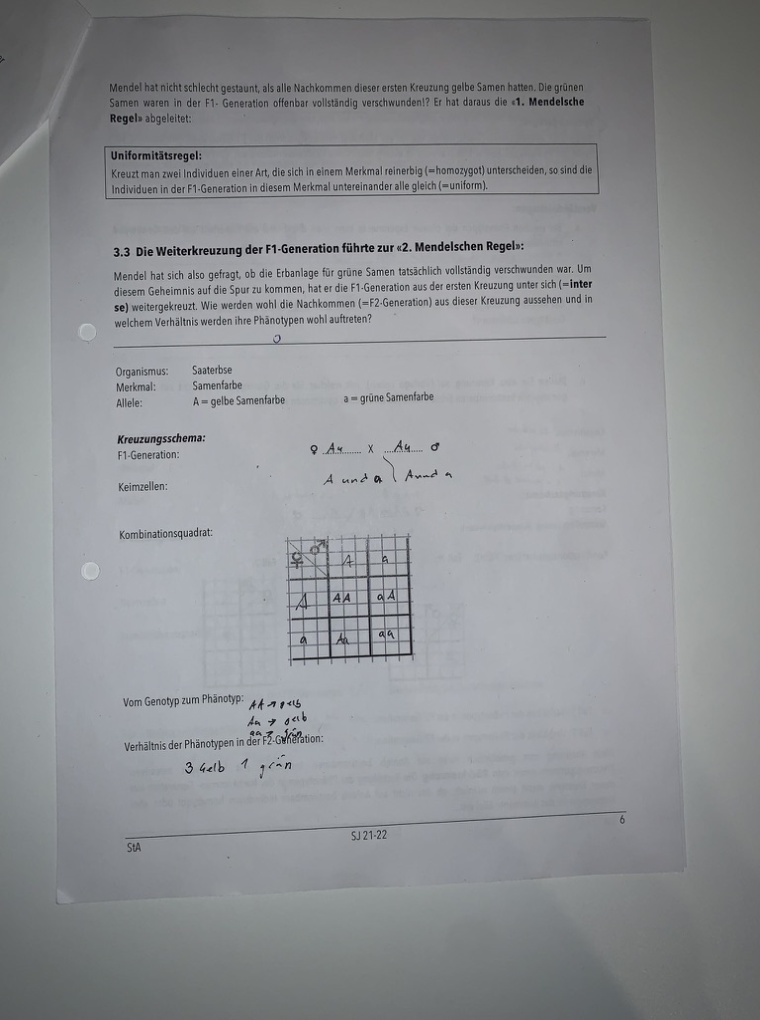 Mendel hat nicht schlecht gestaunt, als alle Nachkommen dieser ersten Kreuzung gelbe Samen hatten. Die grünen
Samen waren in der F1- Generation offenbar vollständig verschwunden!? Er hat daraus die «1. Mendelsche
Regel» abgeleitet:
Uniformitätsregel:
Kreuzt man zwei Individuen einer Art, die sich in einem Merkmal reinerbig (=homozygot) unterscheiden, so sind die
Individuen in der F1-Generation in diesem Merkmal untereinander alle gleich (=uniform).
3.3 Die Weiterkreuzung der F1-Generation führte zur «2. Mendelschen Regel»:
Mendel hat sich also gefragt, ob die Erbanlage für grüne Samen tatsächlich vollständig verschwunden war. Um
diesem Geheimnis auf die Spur zu kommen, hat er die F1-Generation aus der ersten Kreuzung unter sich (=inter
se) weitergekreuzt. Wie werden wohl die Nachkommen (=F2-Generation) aus dieser Kreuzung aussehen und in
welchem Verhältnis werden ihre Phänotypen wohl auftreten?
Organismus: Saaterbse
Merkmal: Samenfarbe
Allele: A = gelbe Samenfarbe a = grüne Samenfarbe
Kreuzungsschema:
F1-Generation: ♀ Aa x Aa ♂
Keimzellen: A und a A und a
Kombinationsquadrat:
♀ ♂ A a
A AA aA
a Aa aa
Vom Genotyp zum Phänotyp: AA → gelb
Aa → gelb
aa → grün
Verhältnis der Phänotypen in der F2-Generation:
3 Gelb 1 grün
6
StA SJ 21-22